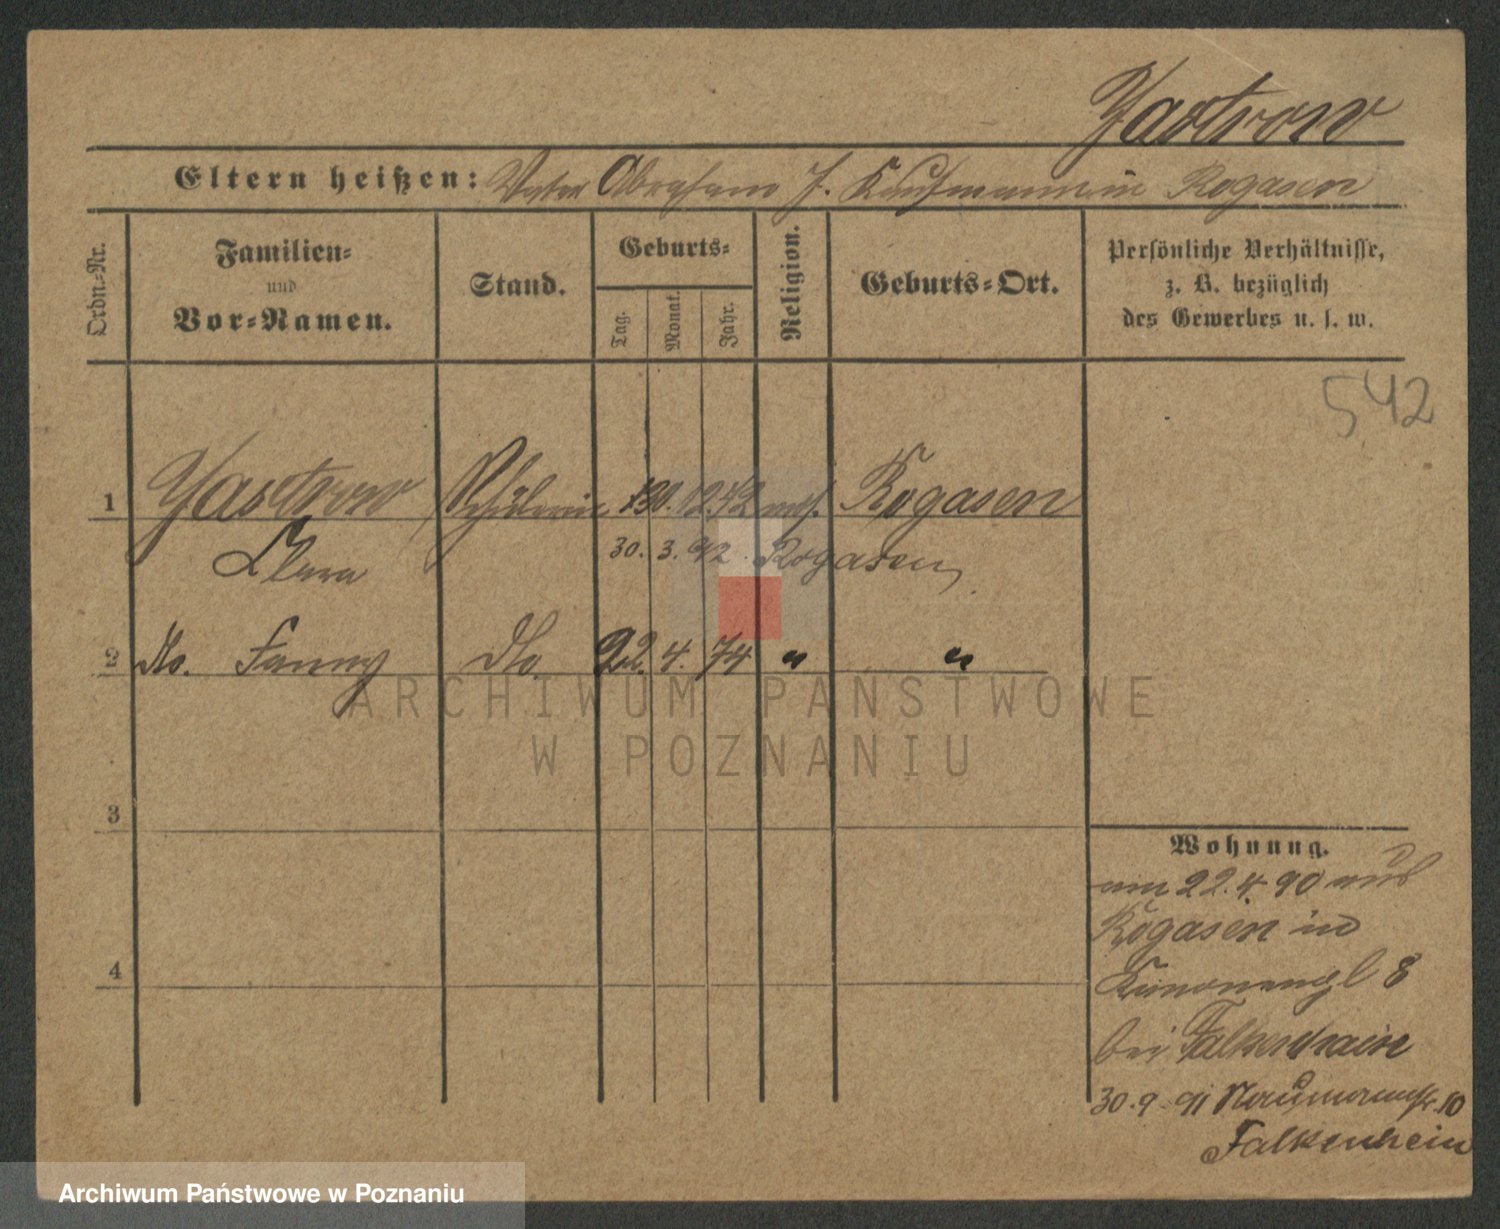 Jastrow
Eltern heißen: Vater Abraham J. Kaufmann in Rogasen
Ordn.-Nr.
Familien-
und
Vor-Namen.
Stand.
Geburts-
Tag.
Monat.
Jahr.
Religion.
Geburts-Ort.
Persönliche Verhältnisse,
z. B. bezüglich
des Gewerbes u. s. w.
542
1 Jastrow Schülerin 12.72 mos. Rogasen
Clara
30. 3. 92. Rogasen
2 dto. Fanny dto 22. 4. 74 " "
ARCHIWUM PAŃSTWOWE
W POZNANIU
3
4
Wohnung.
am 22.4.90 aus
Rogasen in
Kanonenpl 8
bei Falkenhain
30.9.91 Naumannstr. 10
Falkenhein
Archiwum Państwowe w Poznaniu